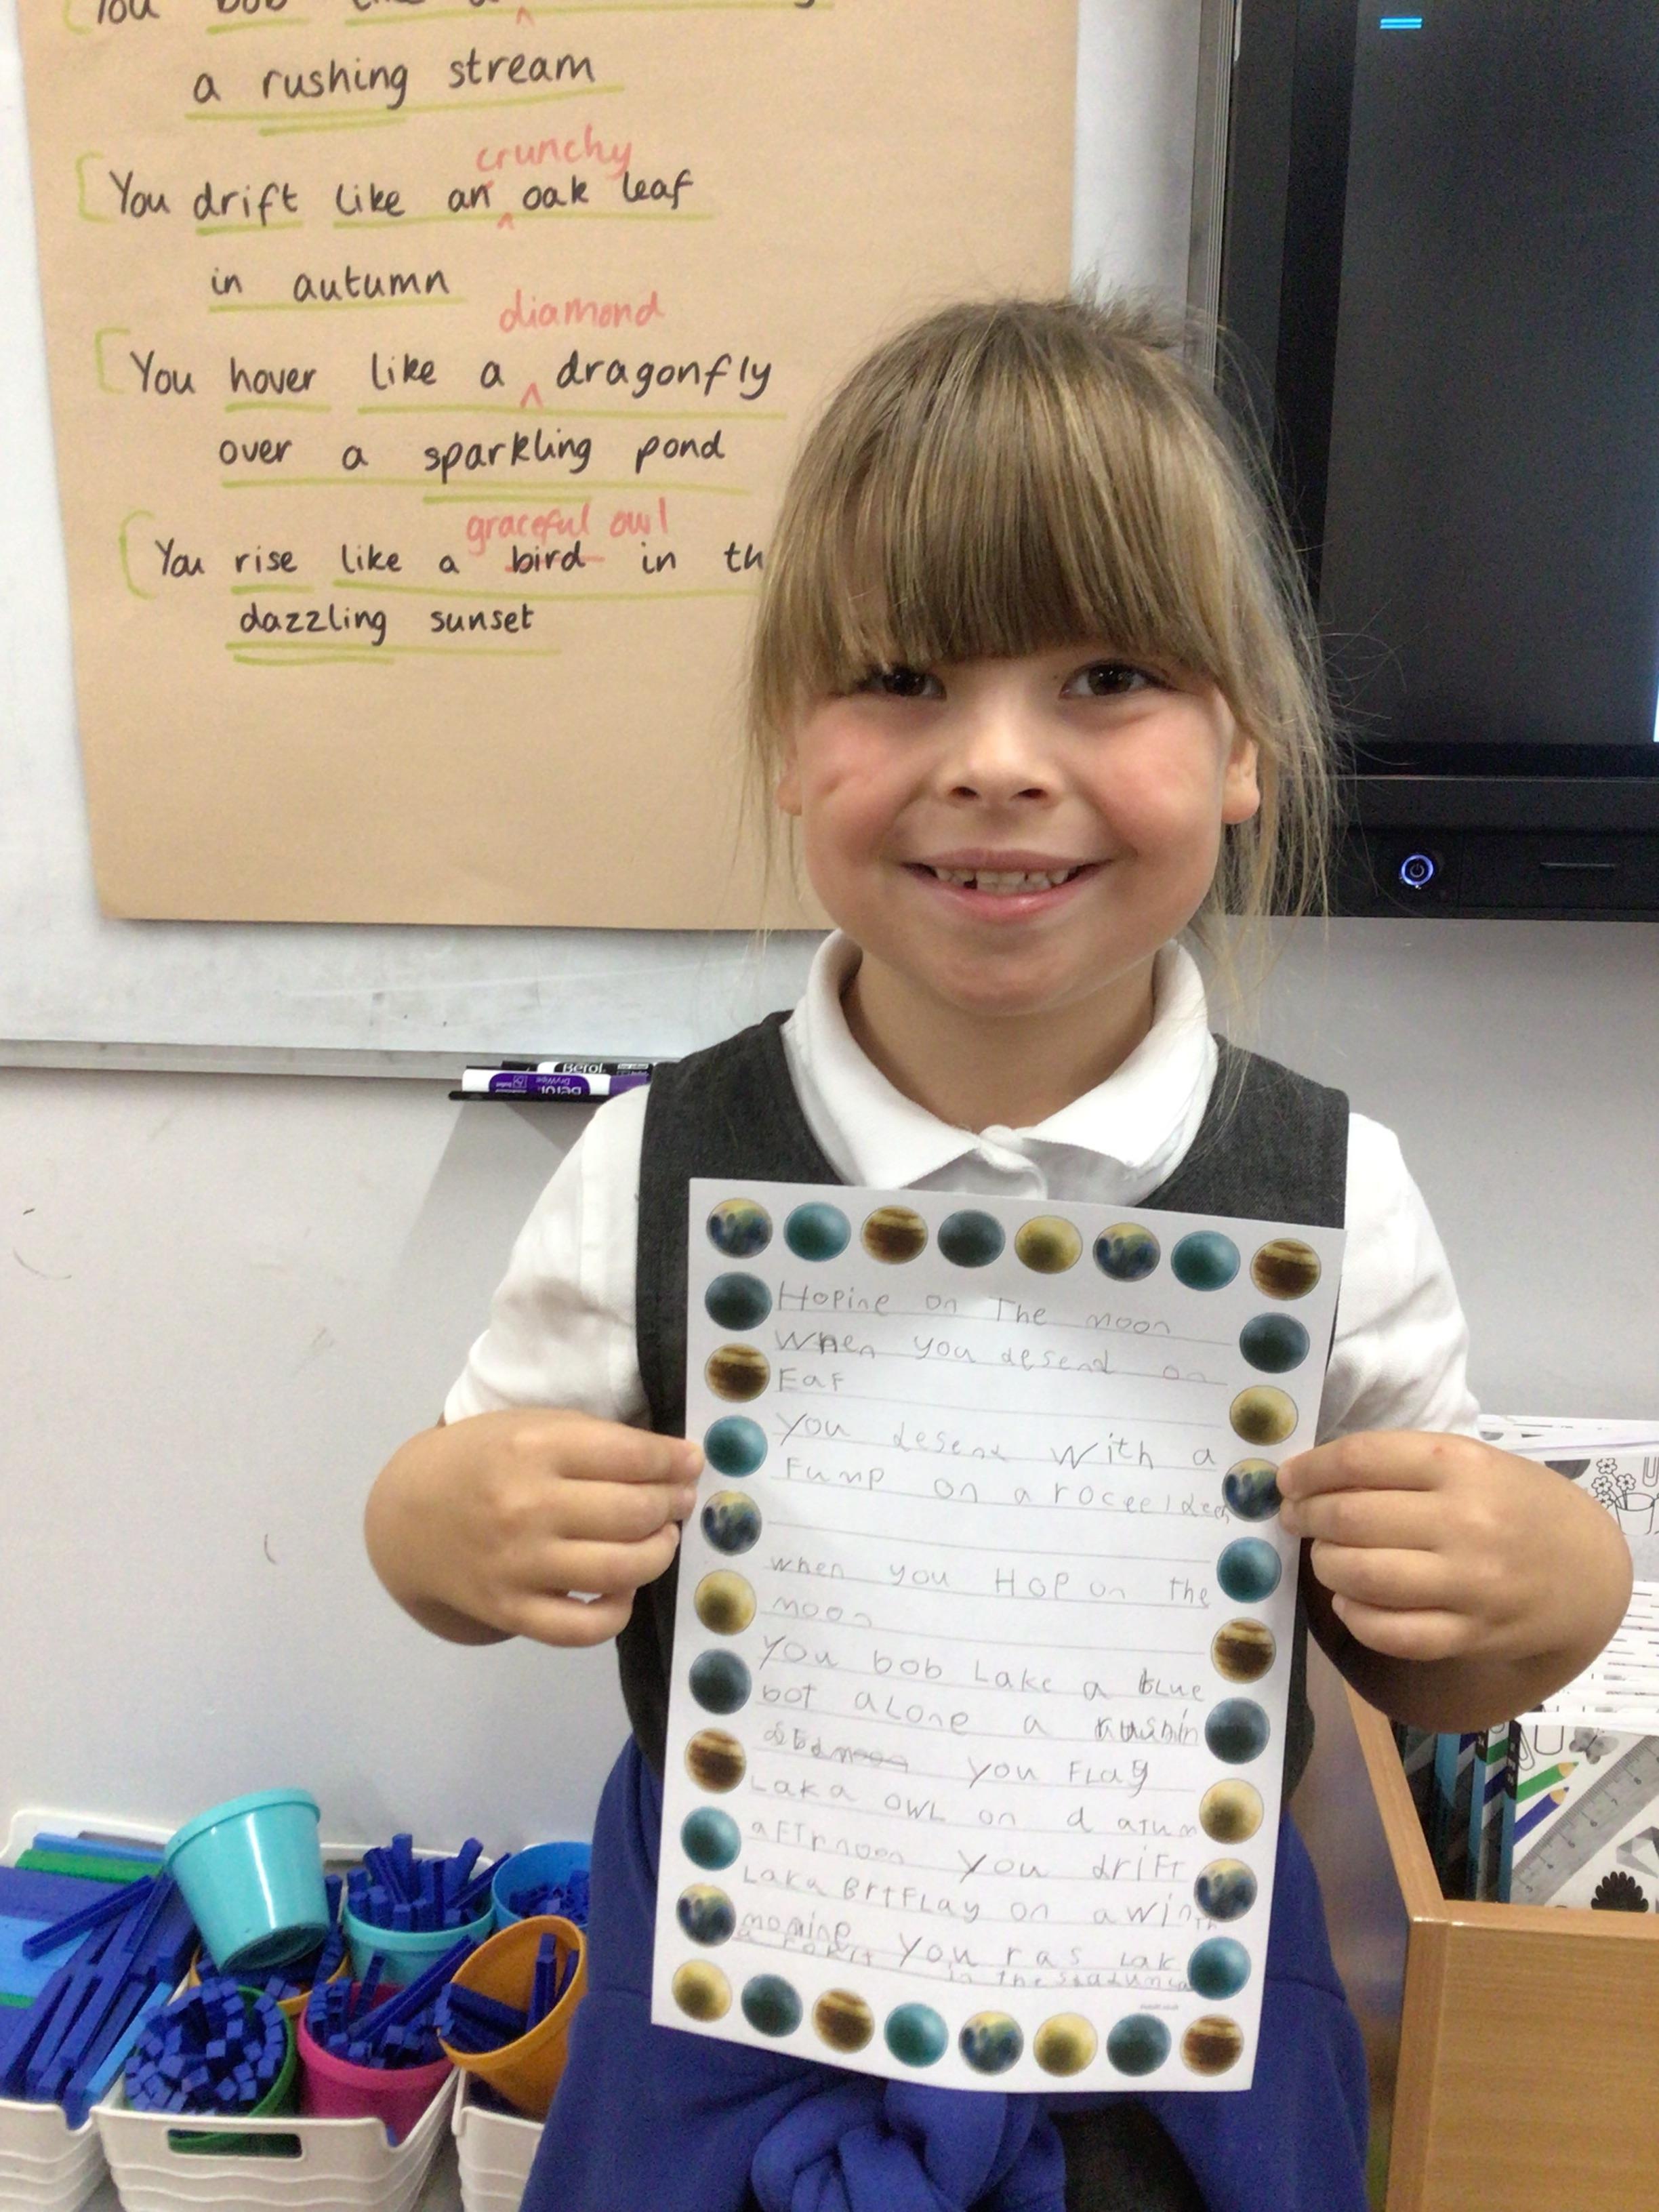 You bob like a
a rushing stream
crunchy
You drift like an oak leaf
in autumn
diamond
You hover like a dragonfly
over a sparkling pond
graceful owl
You rise like a bird in th
dazzling sunset
Berol
DryWipe
Berol
Hopine on The moon
When you desend on
Eaf
You desend with a
Fump on a
when you HOP on the
moon
You bob Lake a blue
bot aLone a rushin
you FLay
Laka OWL on d atum
aFTrnoon You driFT
Laka BrtFLay on a win
morning You ras Lak
in the